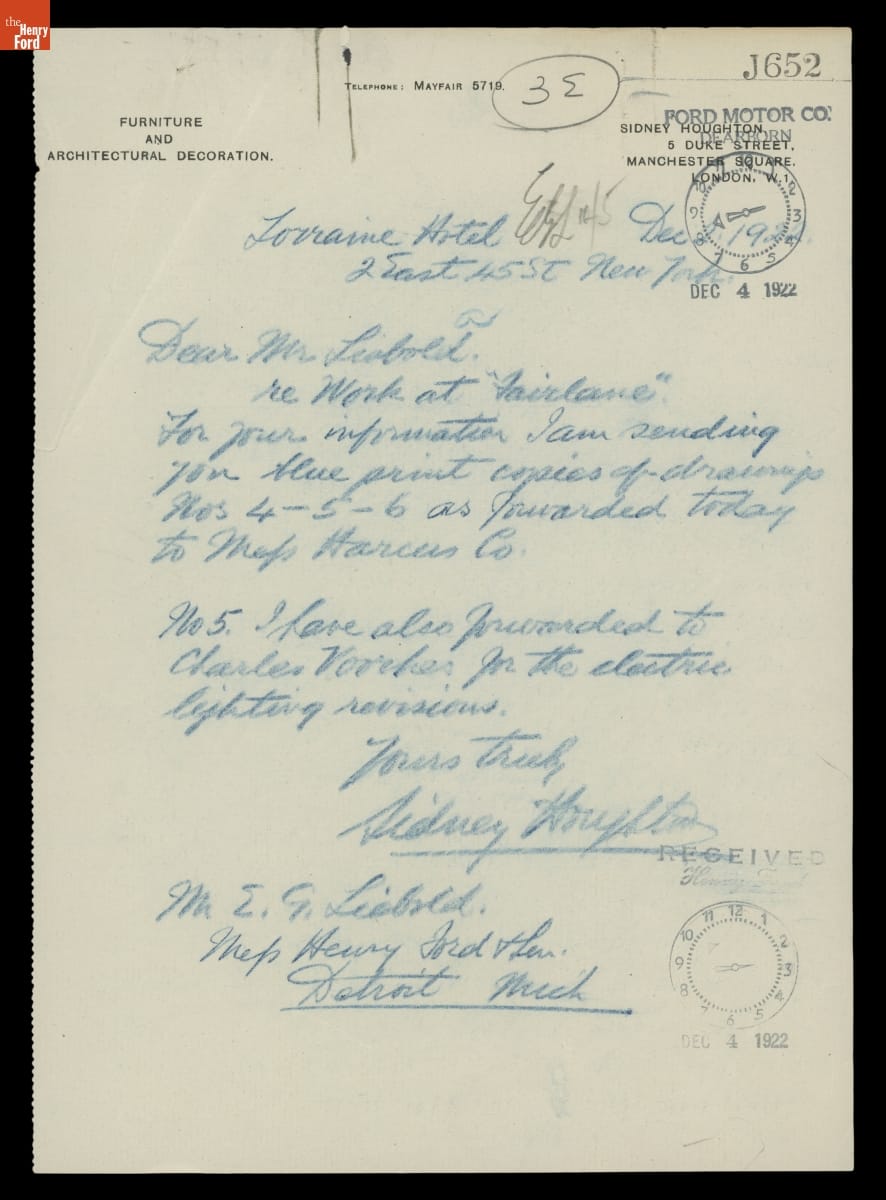 the
Henry
Ford
J652
TELEPHONE: MAYFAIR 5719.
3 E
FURNITURE
AND
ARCHITECTURAL DECORATION.
FORD MOTOR CO.
DEARBORN
SIDNEY HOUGHTON,
5 DUKE STREET,
MANCHESTER SQUARE,
LONDON, W.1.
12 2 3 4 5 6 7 8 9 10 11
DEC 4 1922
Lorraine Hotel Dec 192
2 East 45 St New York.
Dear Mr Liebold.
re Work at "Fairlane".
For your information I am sending
you blue print copies of drawings
Nos 4-5-6 as forwarded today
to Mess Harcus Co.
No 5. I have also forwarded to
Charles Voorhes for the electric
lighting revisions.
Yours truly
Sidney Houghton
RECEIVED
Mr. E. G. Liebold.
Mess Henry Ford & Son.
Detroit Mich
12 1 2 3 4 5 6 7 8 9 10 11
DEC 4 1922